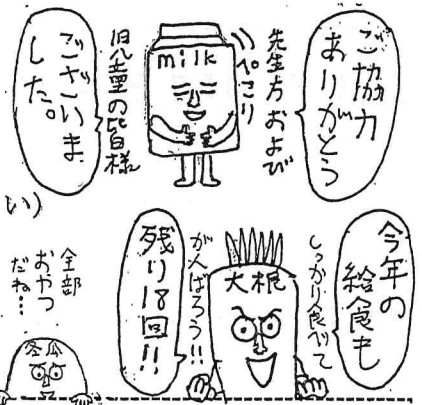 ご協力
ありがとう
先生方および
ぺこり
milk
児童の皆様
ございま
した。
い)
今年の
給食も
しっかり食べて
大根
がんばろう!!
残り18回!!
全部
おやつ
だね…
冬瓜